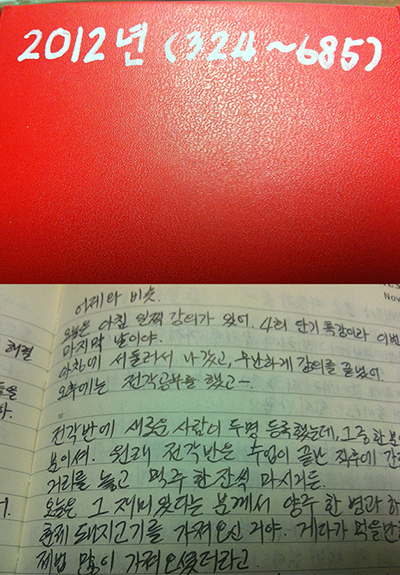 2012년 (324~685)
어제와 비슷.
오늘은 아침 일찍 강의가 있어. 4회 단기특강이라 이번
마지막 날이야.
아침에 서둘러서 나갔고, 무난하게 강의를 끝냈어.
오후에는 전각공부를 했고~.
전각반에 새로운 사람이 두명 등록했는데, 그 중 한 분
분이셔. 원래 전각반은 수업이 끝난 직후에 간
거리를 놓고 맥주 한 잔씩 마시거든.
오늘은 그 재미있다는 분께서 양주 한 병과 하
훈제 돼지고기를 가져오신 거야. 게다가 먹을만한
제법 많이 가져오셨더라고
Nov